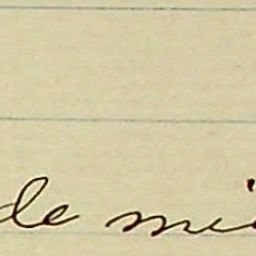 de mi